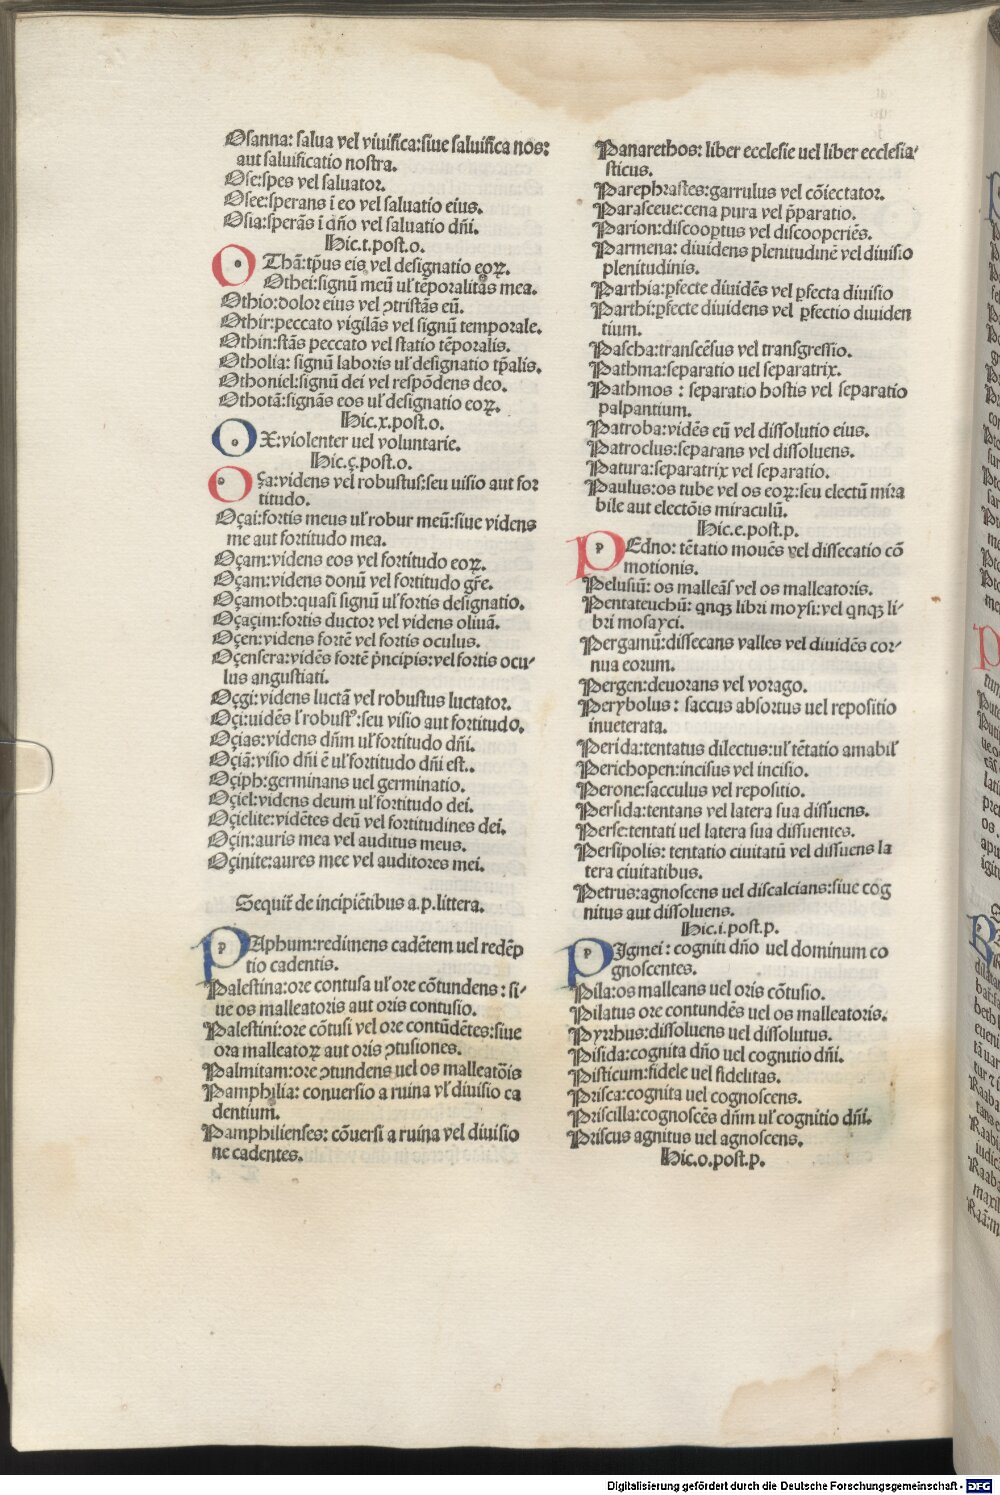 Osanna: salua vel viuifica:siue saluifica nos:
aut saluificatio nostra.
Ose:spes vel saluator.
Osee:sperans ī eo vel saluatio eius.
Osia:sperās ī dño vel saluatio dñi.
Hic.t.post.o.
OThā:tp̄us eis vel designatio eoꝝ.
Othei:signū meū ul' tēporalitās mea.
Othio:dolor eius vel ꝯtristās eū.
Othir:peccato vigilās vel signū temporale.
Othin:stās peccato vel statio tēporalis.
Otholia: signū laboris ul' designatio tp̄alis.
Othoniel:signū dei vel respōdens deo.
Othotā:signās eos ul' designatio eoꝝ.
Hic.x.post.o.
OX:violenter uel voluntarie.
Hic.ç.post.o.
Oça:videns vel robustus:seu uisio aut for
titudo.
Oçai:fortis meus ul' robur meū:siue videns
me aut fortitudo mea.
Oçam:videns eos vel fortitudo eoꝝ.
Oçam:videns donū vel fortitudo gr̄e.
Oçamoth:quasi signū ul' fortis designatio.
Oçaçim:fortis ductor vel videns oliuā.
Oçen:videns fortē vel fortis oculus.
Oçensera:vidēs fortē p̄ncipis:vel fortis ocu-
lus angustiati.
Oçgi:videns luctā vel robustus luctator.
Oçi:uidēs l' robustꝰ:seu visio aut fortitudo.
Oçias:videns dñm ul' fortitudo dñi.
Oçiā:visio dñi ē ul' fortitudo dñi est..
Oçiph:germinans uel germinatio.
Oçiel:videns deum ul' fortitudo dei.
Oçielite:vidētes deū vel fortitudines dei.
Oçin:auris mea vel auditus meus.
Oçinite:aures mee vel auditores mei.
Sequit̄ de incipiētibus a.p.littera.
PAphum:redimens cadētem uel redēp
tio cadentis.
Palestina:ore contusa ul' ore cōtundens: si-
ue os malleatoris aut oris contusio.
Palestini:ore cōtusi vel ore contūdētes:siue
ora malleatoꝝ aut oris ꝯtusiones.
Palmitam:ore ꝯtundens uel os malleatōis
Pamphilia: conuersio a ruina vl' diuisio ca
dentium.
Pamphilienses: cōuersi a ruina vel diuisio
ne cadentes.
Panarethos: liber ecclesie uel liber ecclesia-
sticus.
Parephrastes:garrulus vel cōiectator.
Parasceue:cena pura vel p̄paratio.
Parion:discooptus vel discooperiēs.
Parmena: diuidens plenitudinē vel diuisio
plenitudinis.
Parthia:ꝑfecte diuidēs vel ꝑfecta diuisio
Parthi:ꝑfecte diuidens vel ꝑfectio diuiden
tium.
Pascha:transcēsus vel transgressio.
Pathma:separatio uel separatrix.
Pathmos : separatio hostis vel separatio
palpantium.
Patroba:vidēs eū vel dissolutio eius.
Patroclus:separans vel dissoluens.
Patura:separatrix vel separatio.
Paulus:os tube vel os eoꝝ:seu electū mira
bile aut electōis miraculū.
Hic.e.post.p.
PEdno: tētatio mouēs vel dissecatio cō
motionis.
Pelusiū: os malleās vel os malleatoris.
Pentateuchū: qnqꝫ libri moysi:vel qnqꝫ li-
bri mosayci.
Pergamū:dissecans valles vel diuidēs cor-
nua eorum.
Pergen:deuorans vel vorago.
Perybolus: saccus absortus uel repositio
inueterata.
Perida:tentatus dilectus:ul' tētatio amabil'
Perichopen:incisus vel incisio.
Perone:sacculus vel repositio.
Persida:tentans vel latera sua dissuens.
Perse:tentati uel latera sua dissuentes.
Persipolis: tentatio ciuitatū vel dissuens la
tera ciuitatibus.
Petrus:agnoscens uel discalcians:siue cog
nitus aut dissoluens.
Hic.i.post.p.
PIgmei: cogniti dño uel dominum co
gnoscentes.
Pila:os malleans uel oris cōtusio.
Pilatus ore contundēs uel os malleatoris.
Pyrrhus:dissoluens uel dissolutus.
Pisida:cognita dño uel cognitio dñi.
Pisticum:fidele uel fidelitas.
Prisca:cognita uel cognoscens.
Priscilla:cognoscēs dñm ul' cognitio dñi.
Priscus agnitus uel agnoscens.
Hic.o.post.p.
Digitalisierung gefördert durch die Deutsche Forschungsgemeinschaft - DFG